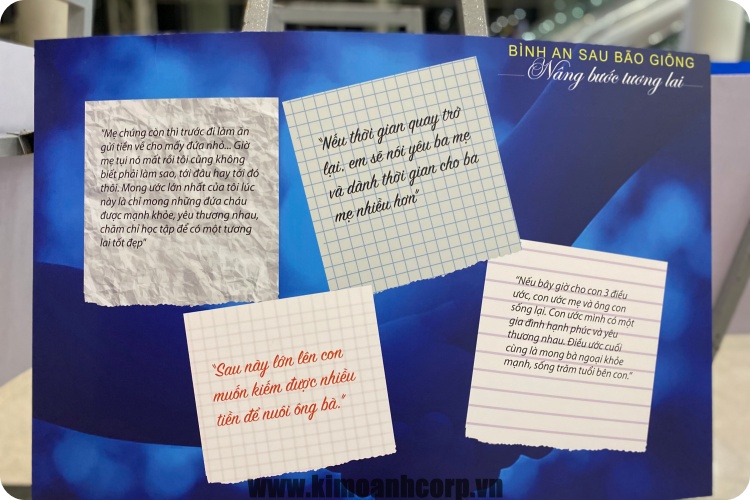 BÌNH AN SAU BÃO GIÔNG
Nâng bước tương lai
"Mẹ chúng còn thì trước đi làm ăn
gửi tiền về cho mấy đứa nhỏ... Giờ
mẹ tụi nó mất rồi tôi cũng không
biết phải làm sao, tới đâu hay tới đó
thôi. Mong ước lớn nhất của tôi lúc
này là chỉ mong những đứa cháu
được mạnh khỏe, yêu thương nhau,
chăm chỉ học tập để có một tương
lai tốt đẹp"
"Nếu thời gian quay trở
lại, em sẽ nói yêu ba mẹ
và dành thời gian cho ba
mẹ nhiều hơn"
"Sau này lớn lên con
muốn kiếm được nhiều
tiền để nuôi ông bà."
"Nếu bây giờ cho con 3 điều
ước, con ước mẹ và ông con
sống lại. Con ước mình có một
gia đình hạnh phúc và yêu
thương nhau. Điều ước cuối
cùng là mong bà ngoại khỏe
mạnh, sống trăm tuổi bên con."
www.kimoanhcorp.vn